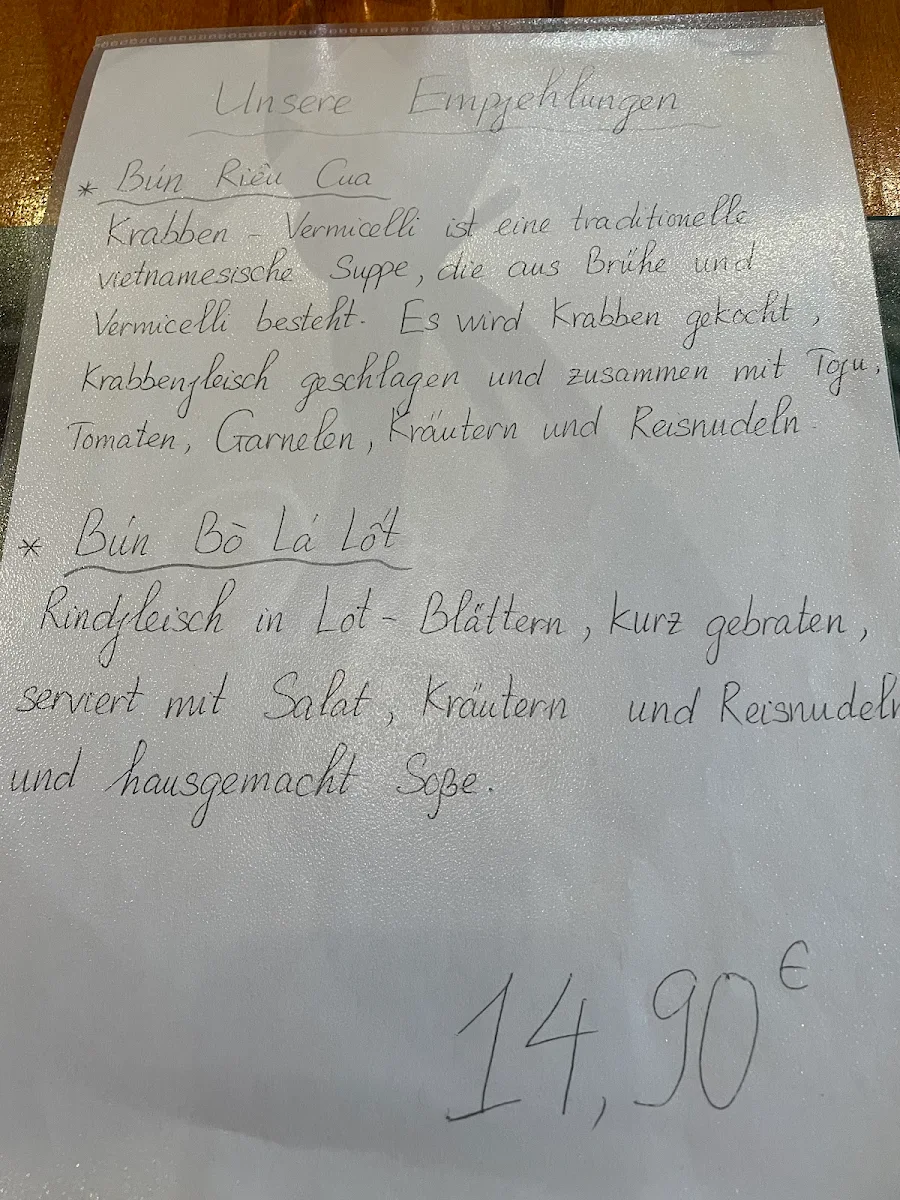 Unsere Empfehlungen
* Bún Riêu Cua
Krabben - Vermicelli ist eine traditionelle
vietnamesische Suppe, die aus Brühe und
Vermicelli besteht. Es wird Krabben gekocht,
Krabbenfleisch geschlagen und zusammen mit Tofu,
Tomaten, Garnelen, Kräutern und Reisnudeln.
* Bún Bò Lá Lốt
Rindfleisch in Lot - Blättern, kurz gebraten,
serviert mit Salat, Kräutern und Reisnudeln
und hausgemacht Soße.
14,90 €